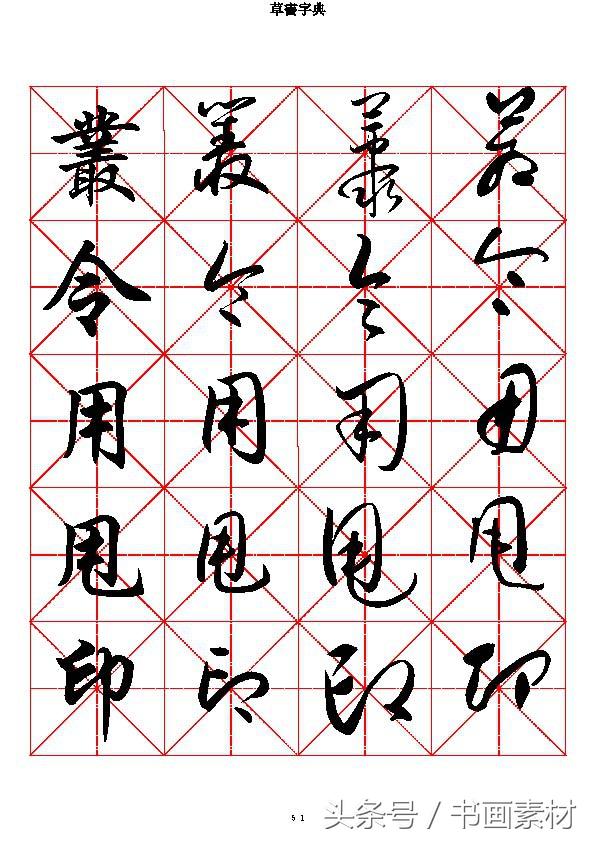 草書字典
叢 叢 叢 叢
令 令 令 令
用 用 用 用
甩 甩 甩 甩
印 印 印 印
51
头条号 / 书画素材